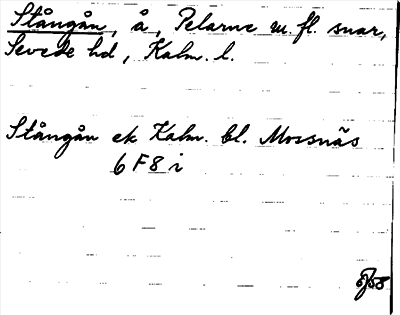 Stångån, å, Pelarne m. fl. snar,
Sevede hd, Kalm. l.
Stångån ek Kalm. bl. Mossnäs
6 F 8 i